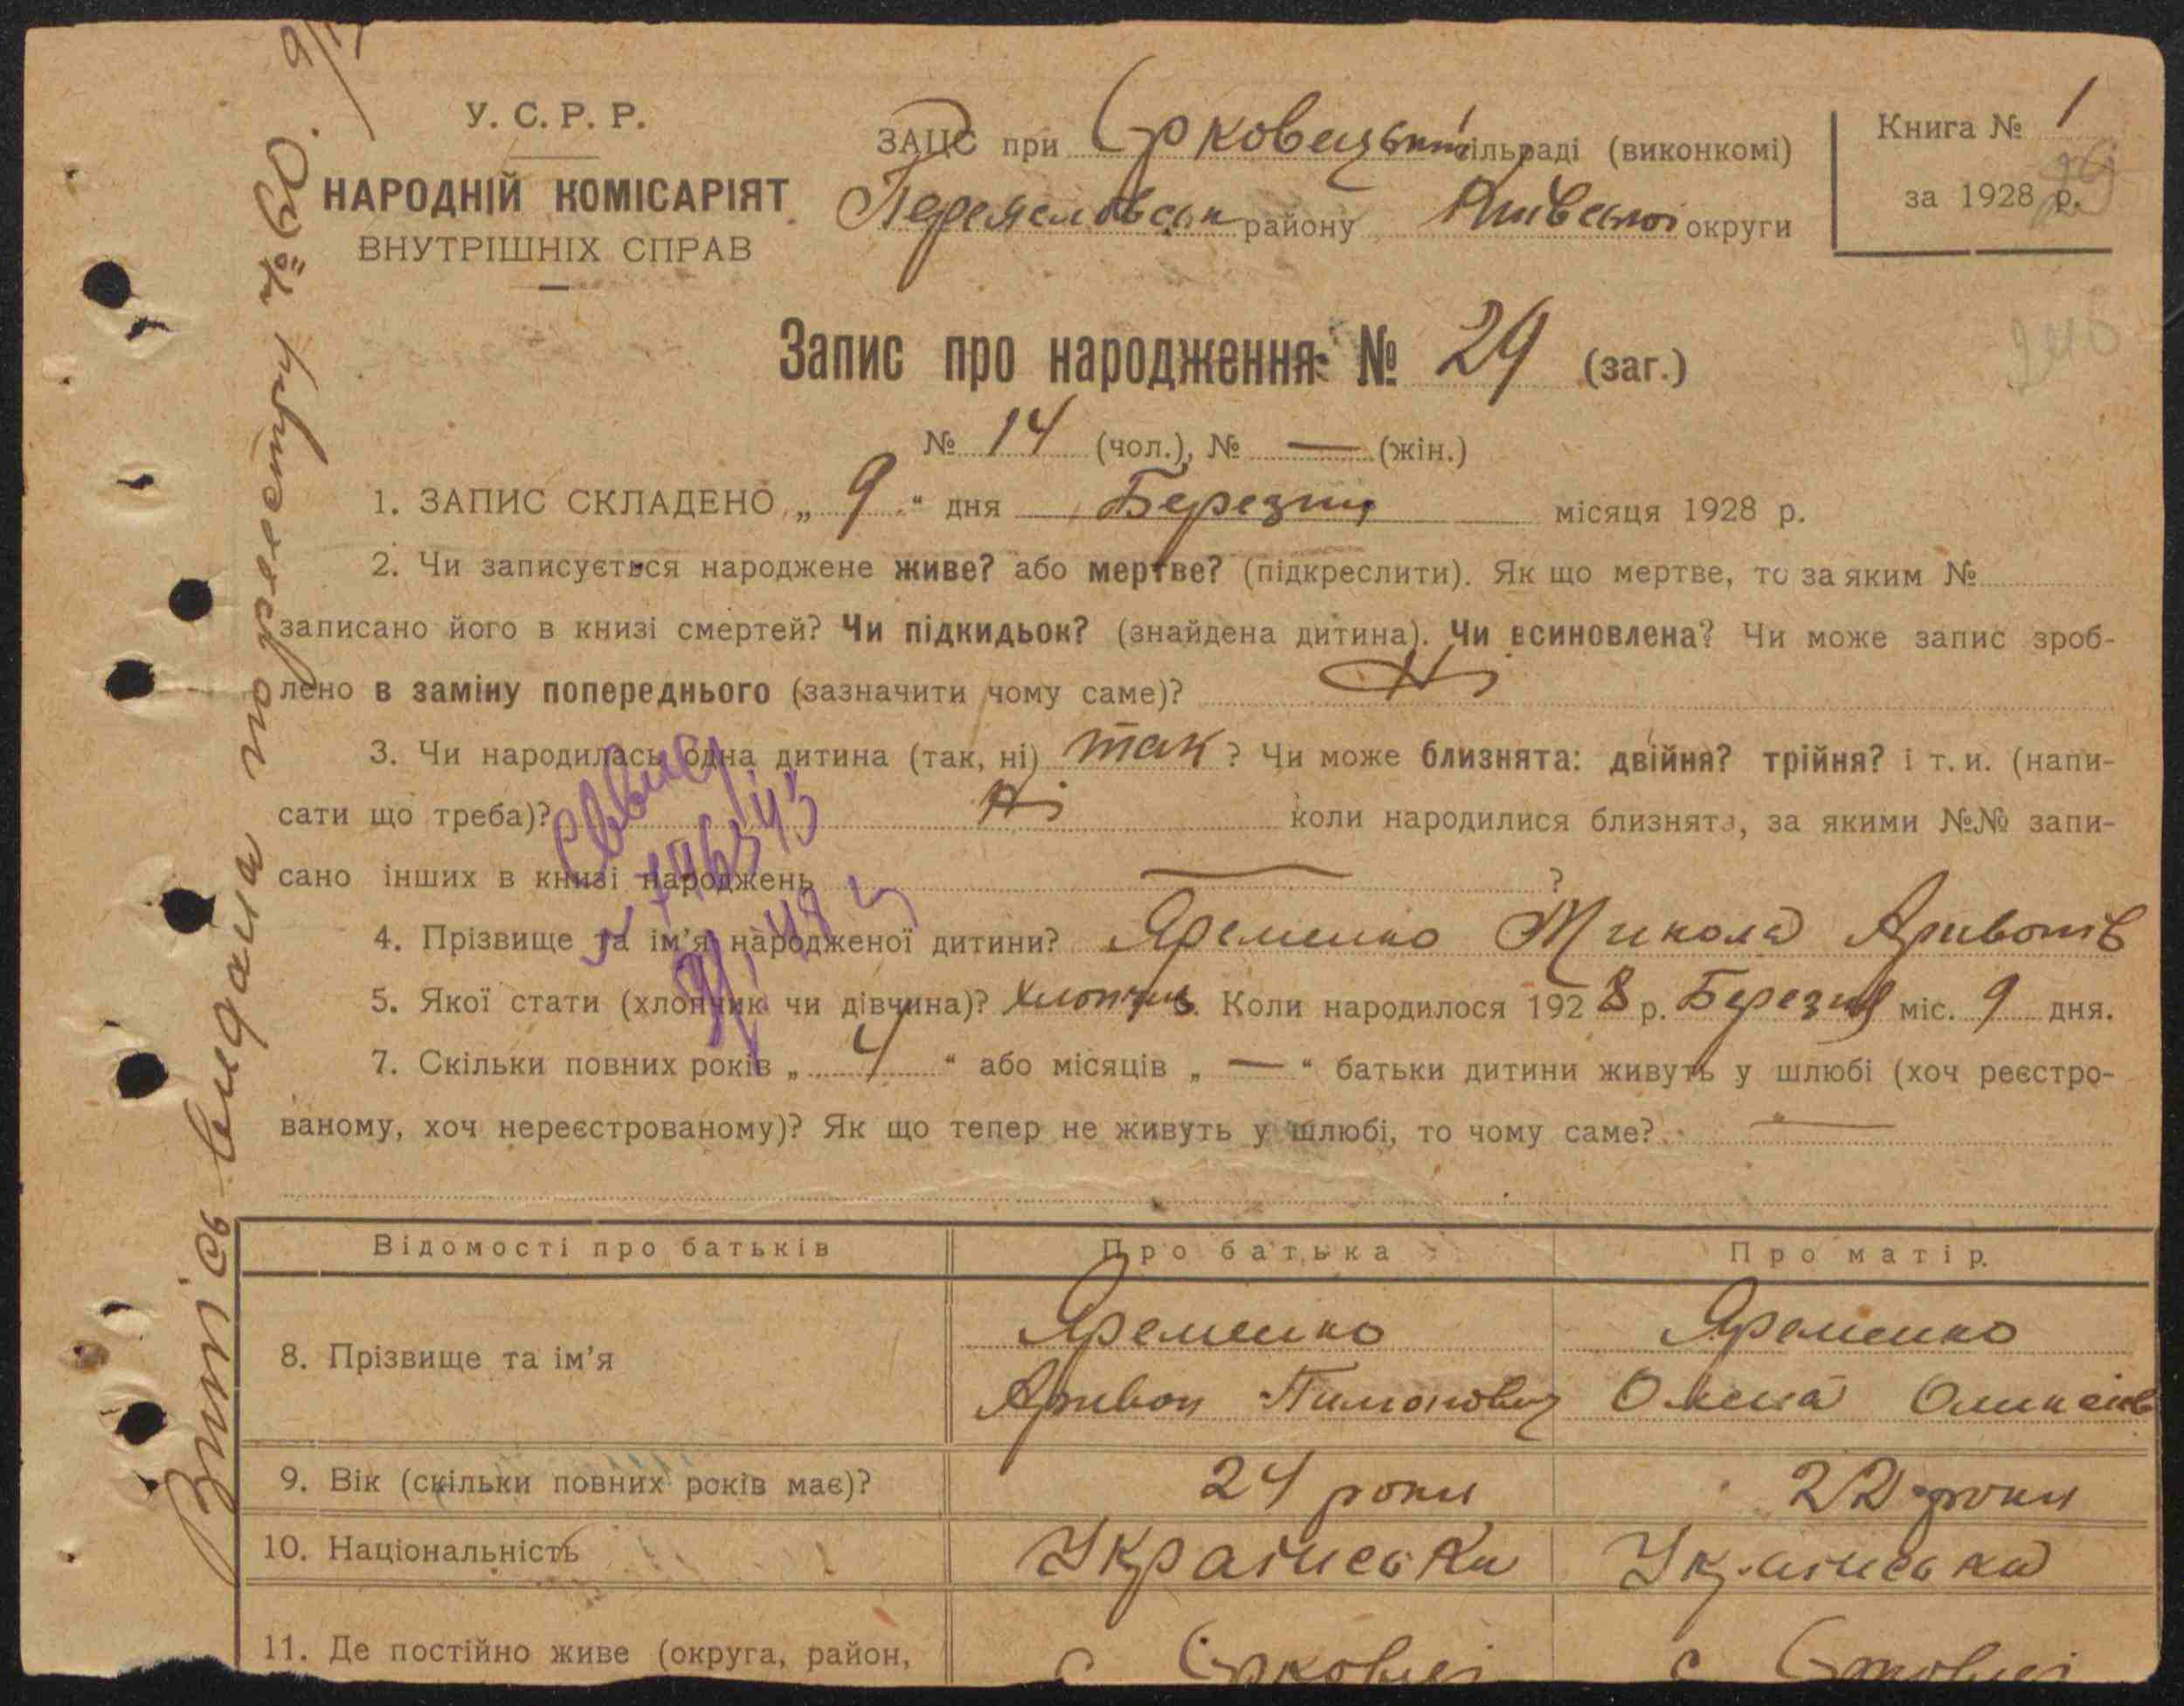 У. С. Р. Р.
НАРОДНІЙ КОМІСАРІЯТ
ВНУТРІШНІХ СПРАВ
ЗАЦС при Єрковецький сільраді (виконкомі)
Переяславськ району Київської округи
Книга № 1
за 1928 р.
Запис про народження № 29 (заг.)
№ 14 (чол.), № — (жін.)
1. ЗАПИС СКЛАДЕНО „ 9 “ дня Березня місяця 1928 р.
2. Чи записується народжене живе? або мертве? (підкреслити). Як що мертве, то за яким №
записано його в книзі смертей? Чи підкидьок? (знайдена дитина). Чи всиновлена? Чи може запис зроб-
лено в заміну попереднього (зазначити чому саме)? Ні
3. Чи народилась одна дитина (так, ні) так ? Чи може близнята: двійня? трійня? і т. и. (напи-
сати що треба)? Ні коли народилися близнята, за якими №№ запи-
сано інших в книзі народжень — ?
4. Прізвище та ім’я народженої дитини? Яременко Микола
5. Якої стати (хлопчик чи дівчина)? Хлопчик. Коли народилося 1928 р. Березня міс. 9 дня.
7. Скільки повних років „ 4 “ або місяців „ — “ батьки дитини живуть у шлюбі (хоч реєстро-
ваному, хоч нереєстрованому)? Як що тепер не живуть у шлюбі, то чому саме? —
Відомості про батьків Про батька Про матір
8. Прізвище та ім’я
Яременко Яременко
Олена
9. Вік (скільки повних років має)? 24 роки 22 роки
10. Національність Українська Українська
11. Де постійно живе (округа, район, с Єрковці с Єрковці
Витісь видана